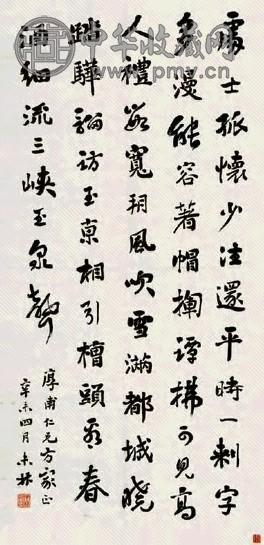 中华收藏网
處士孤懷少往還平時一刺字
多漫能容著帽譚拂可見高
人禮數寬朔風吹雪滿都城曉
踏驊騮訪玉京相引檐頭看春
溜細流三峽玉泉聲
厚甫仁兄方家正
辛未四月